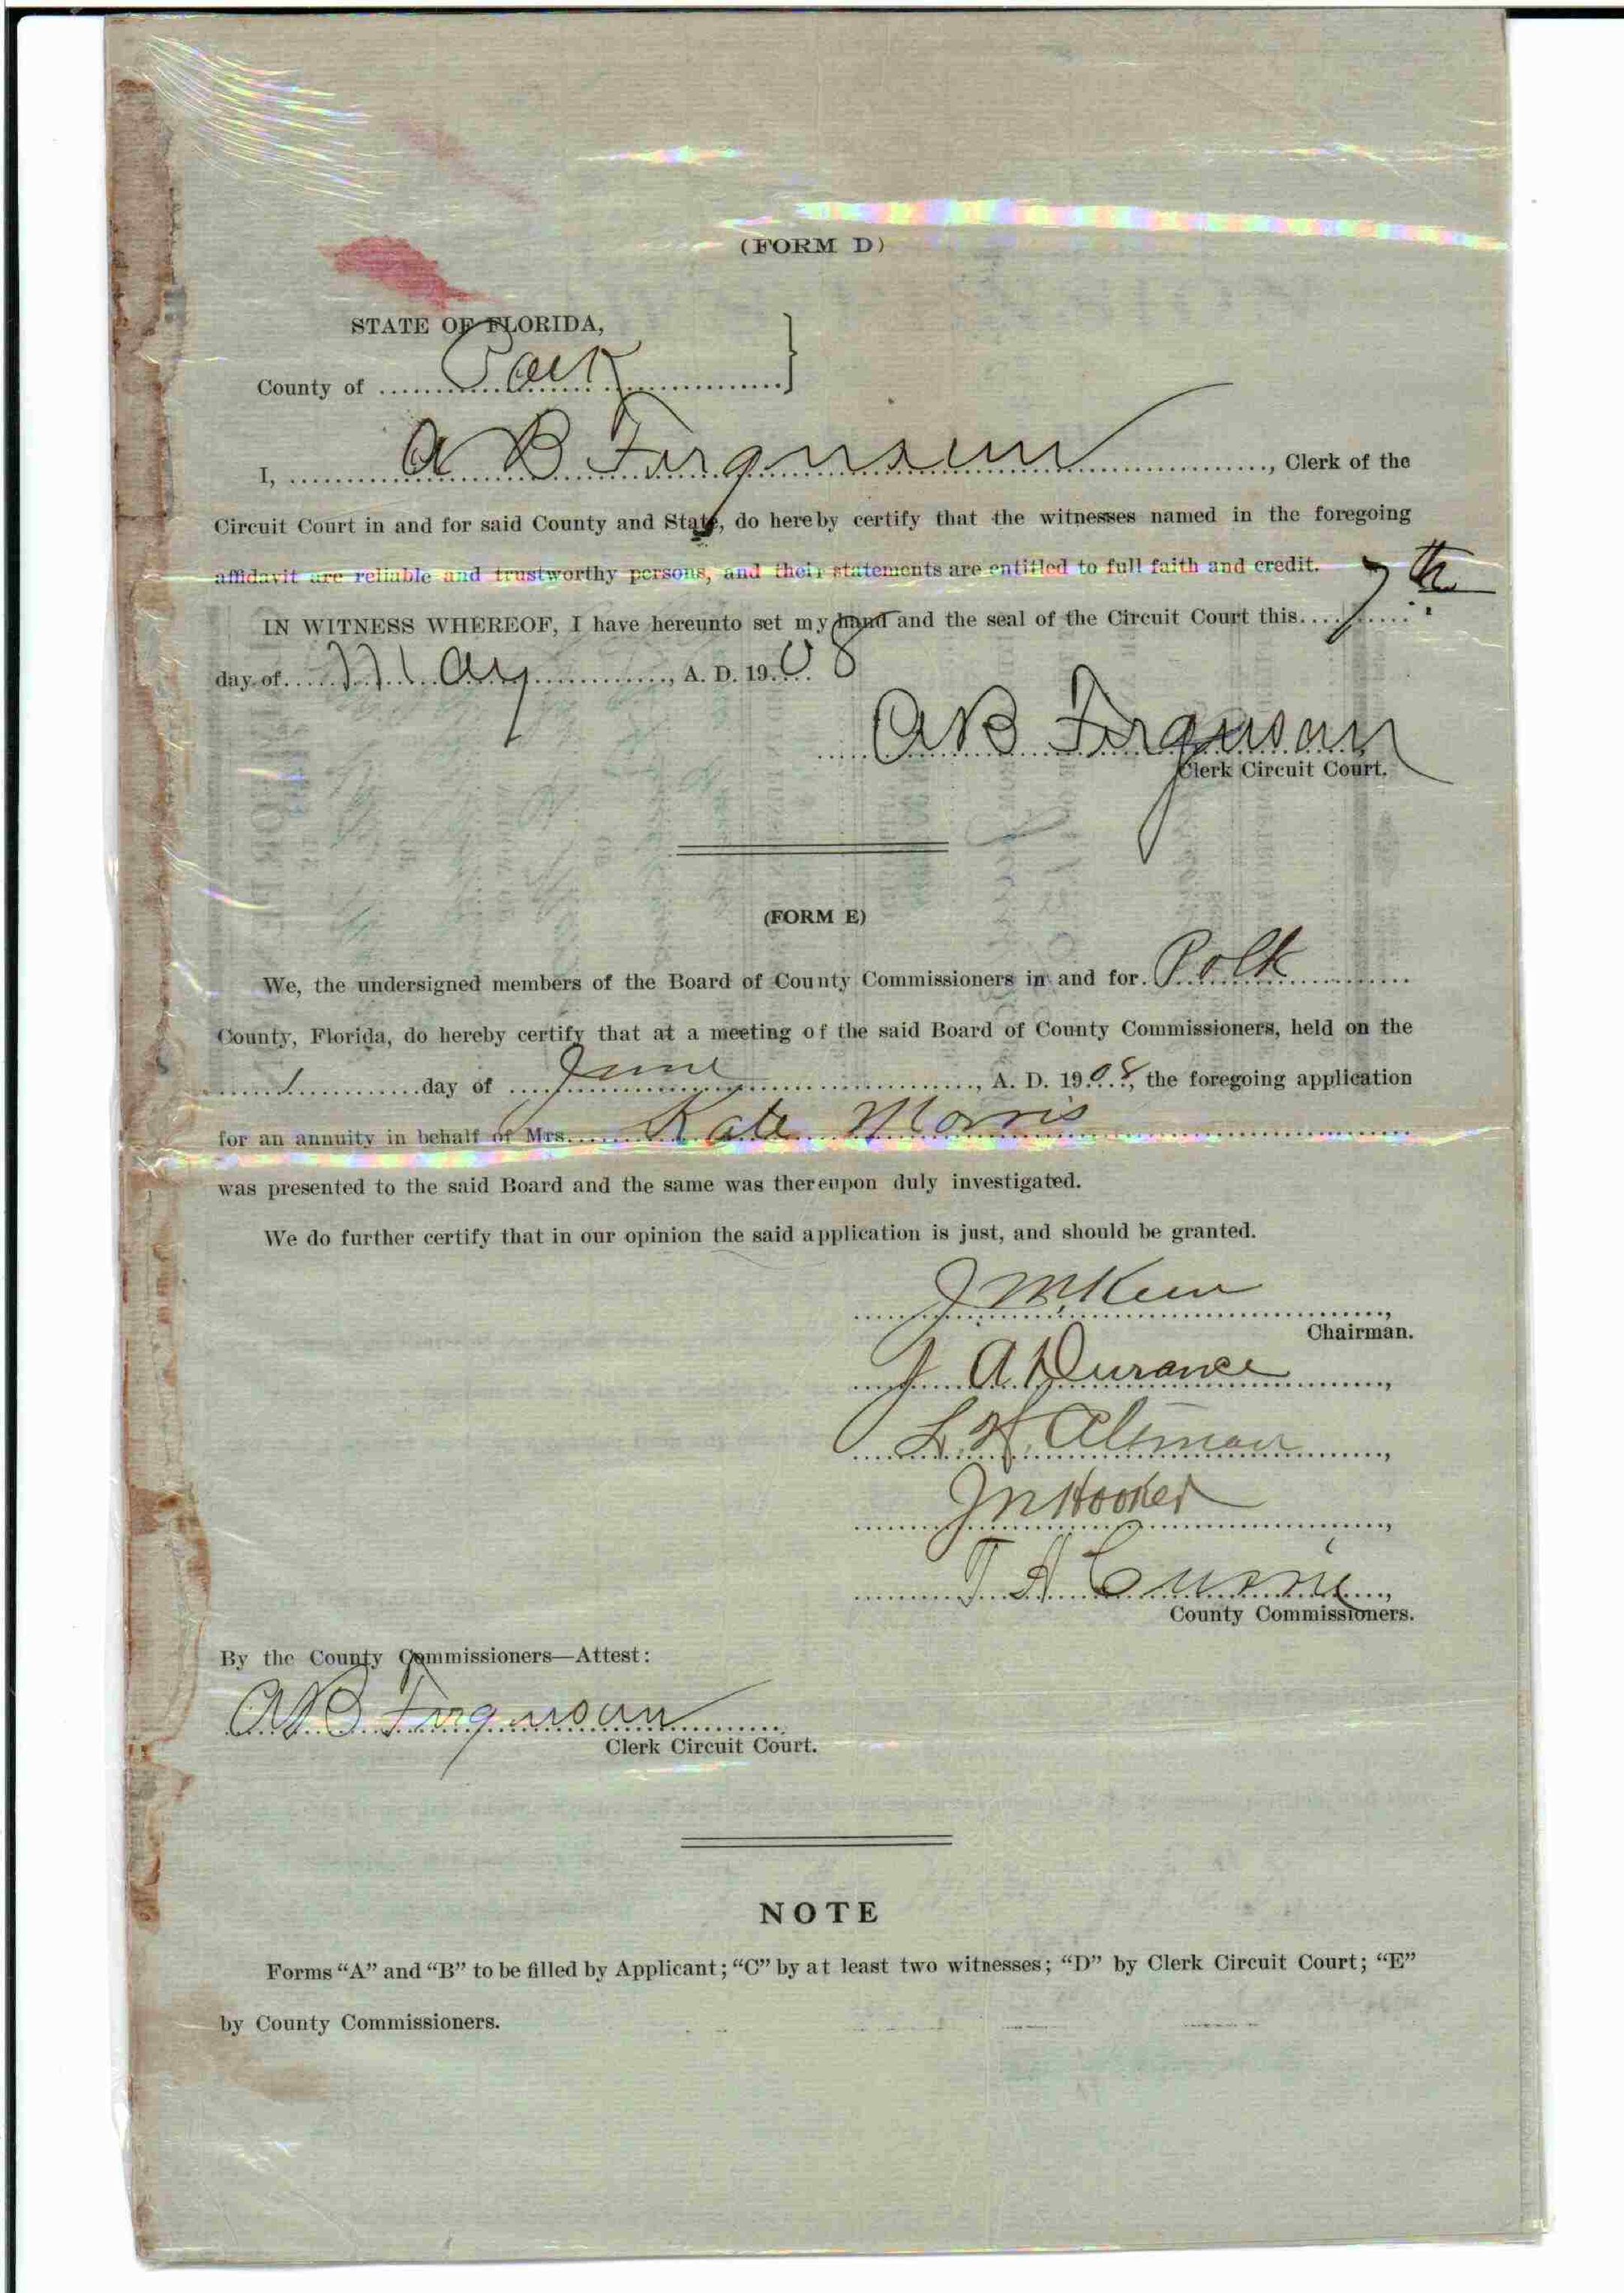 (FORM D)
STATE OF FLORIDA,
County of Polk
I, A B Ferguson, Clerk of the
Circuit Court in and for said County and State, do hereby certify that the witnesses named in the foregoing
affidavit are reliable and trustworthy persons, and their statements are entitled to full faith and credit.
IN WITNESS WHEREOF, I have hereunto set my hand and the seal of the Circuit Court this 7th
day of May, A. D. 1908
A B Ferguson
Clerk Circuit Court.
(FORM E)
We, the undersigned members of the Board of County Commissioners in and for Polk
County, Florida, do hereby certify that at a meeting of the said Board of County Commissioners, held on the
1 day of June, A. D. 1908, the foregoing application
for an annuity in behalf of Mrs. Kate Morris
was presented to the said Board and the same was thereupon duly investigated.
We do further certify that in our opinion the said application is just, and should be granted.
J M Keen,
Chairman.
J A Durance,
L. H. Altman,
J N Hooker,
T A Currie,
County Commissioners.
By the County Commissioners—Attest:
A B Ferguson
Clerk Circuit Court.
NOTE
Forms "A" and "B" to be filled by Applicant; "C" by at least two witnesses; "D" by Clerk Circuit Court; "E"
by County Commissioners.